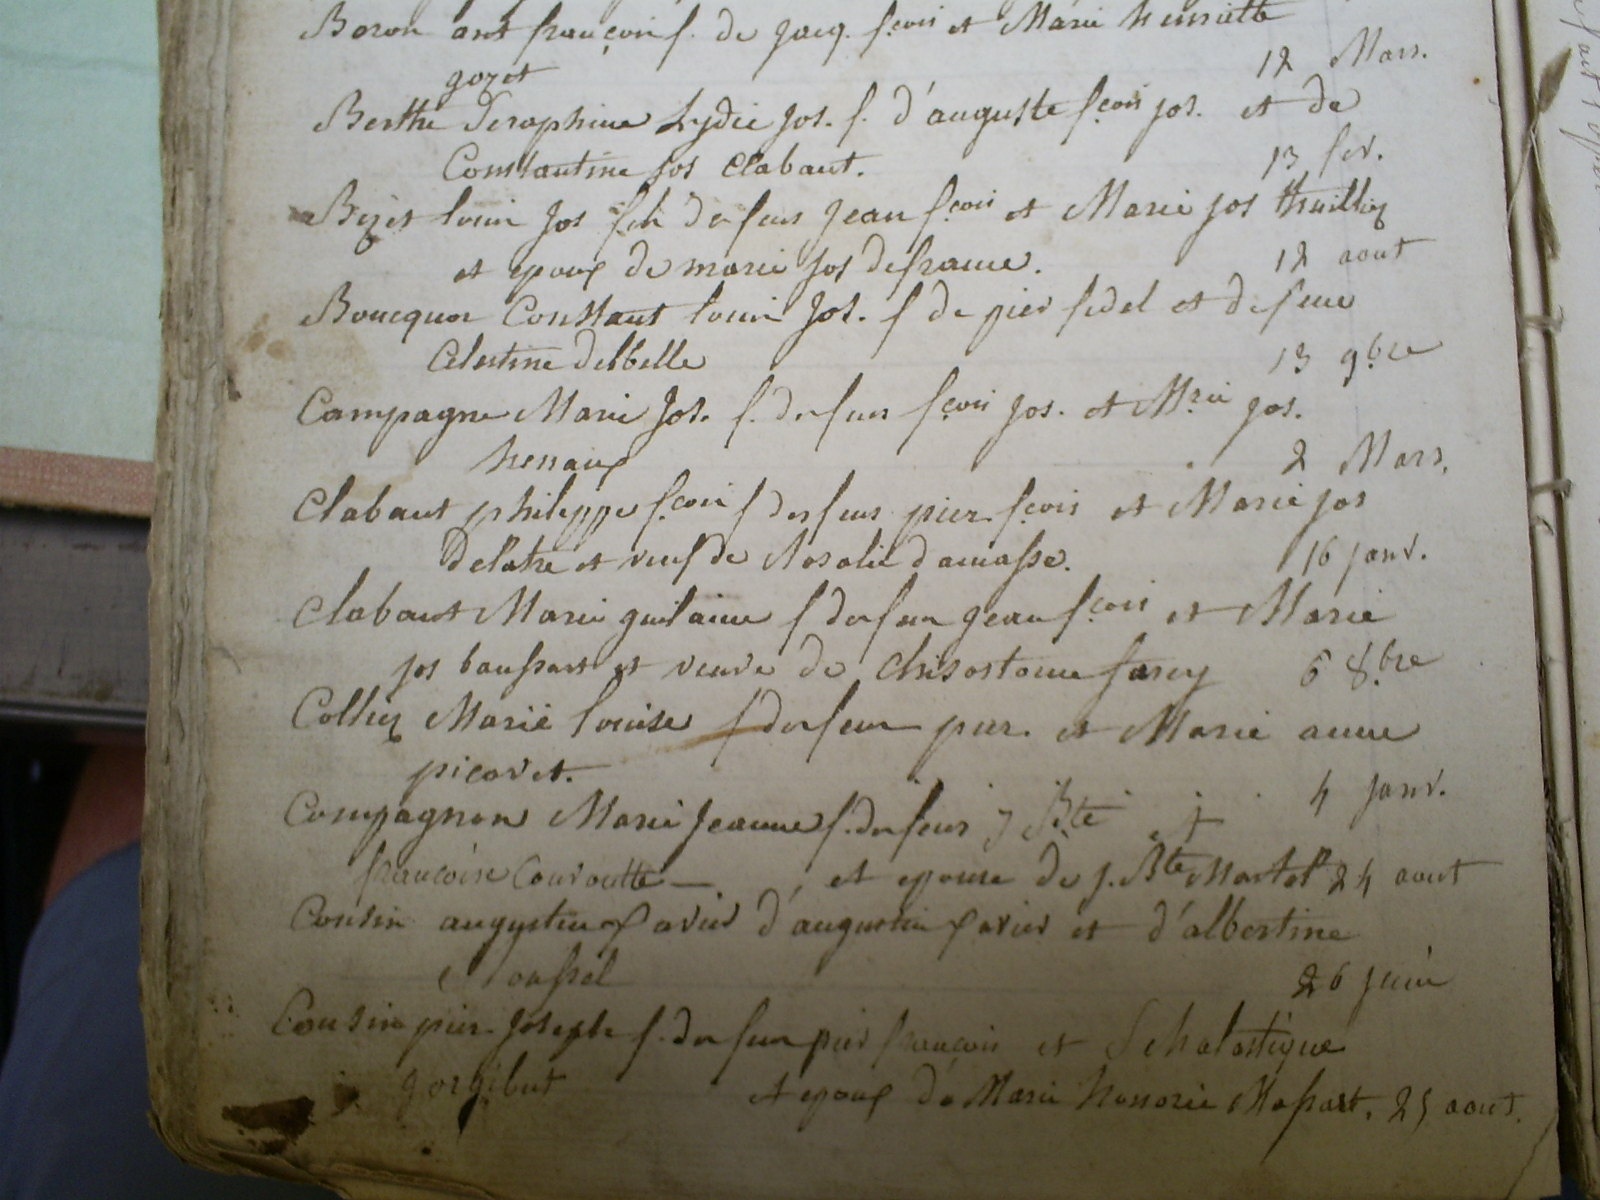 Boron ant françois f. de jacq. fçois et Marie henriette
gozet 12 Mars.
Berthe Seraphine Lydie Jos. f. d'auguste fçois jos. et de
Constantine jos Clabaut. 13 fev.
Bizet louis Jos fils de feus jean fçois et Marie jos thuilliez
et epoux de marie jos defrance. 12 aout
Boucquez Constant louis Jos. f de pier fidel et de feue
Celestine Delbelle 13 9bre
Campagne Marie Jos. f. de feus fçois jos. et Mrie jos.
henaux 2 Mars.
Clabaut philippe fçois f de feus pier fçois et Marie jos
Delatre et veuf de Rosalie damasse. 16 janv.
Clabaut Marie guilaine f de feu jean fçois et Marie
jos baussart et veuve de Chrisostome farcy 6 8bre
Colliez Marie louise f de feu pier. et Marie anne
picavet. 4 janv.
Compagnon Marie Jeanne f. de feus j Bte et
françoise Couroutte —. et epouse de j. Bte Martel 24 aout
Cousin augustin xavier d'augustin xavier et d'albertine
26 juin
Cousin pier Joseph f. de feu pier françois et Scholastique
gorgibut et epoux de Marie honorée Massart. 25 aout.